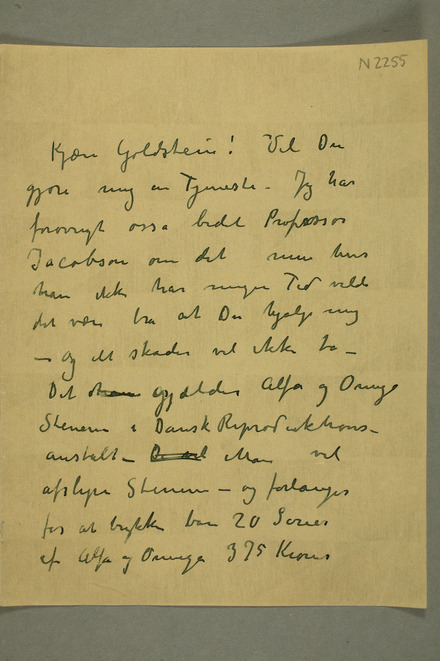 N 2255
Kjære Goldstein! Vil Du
gjøre mig en Tjeneste – Jeg har
forøvrigt ossa bedt Professor
Jacobson om det men hvis
han ikke har nogen Tid vilde
det være bra at Du hjalp mig
– og et skader vel ikke to –
Det gjælder Alfa og Omega
Stenene i Dansk Reproduktions-
anstalt – Man vil
afslipe Stenene – og forlanger
for at trykke bare 20 Serier
af Alfa og Omega 375 Kroner